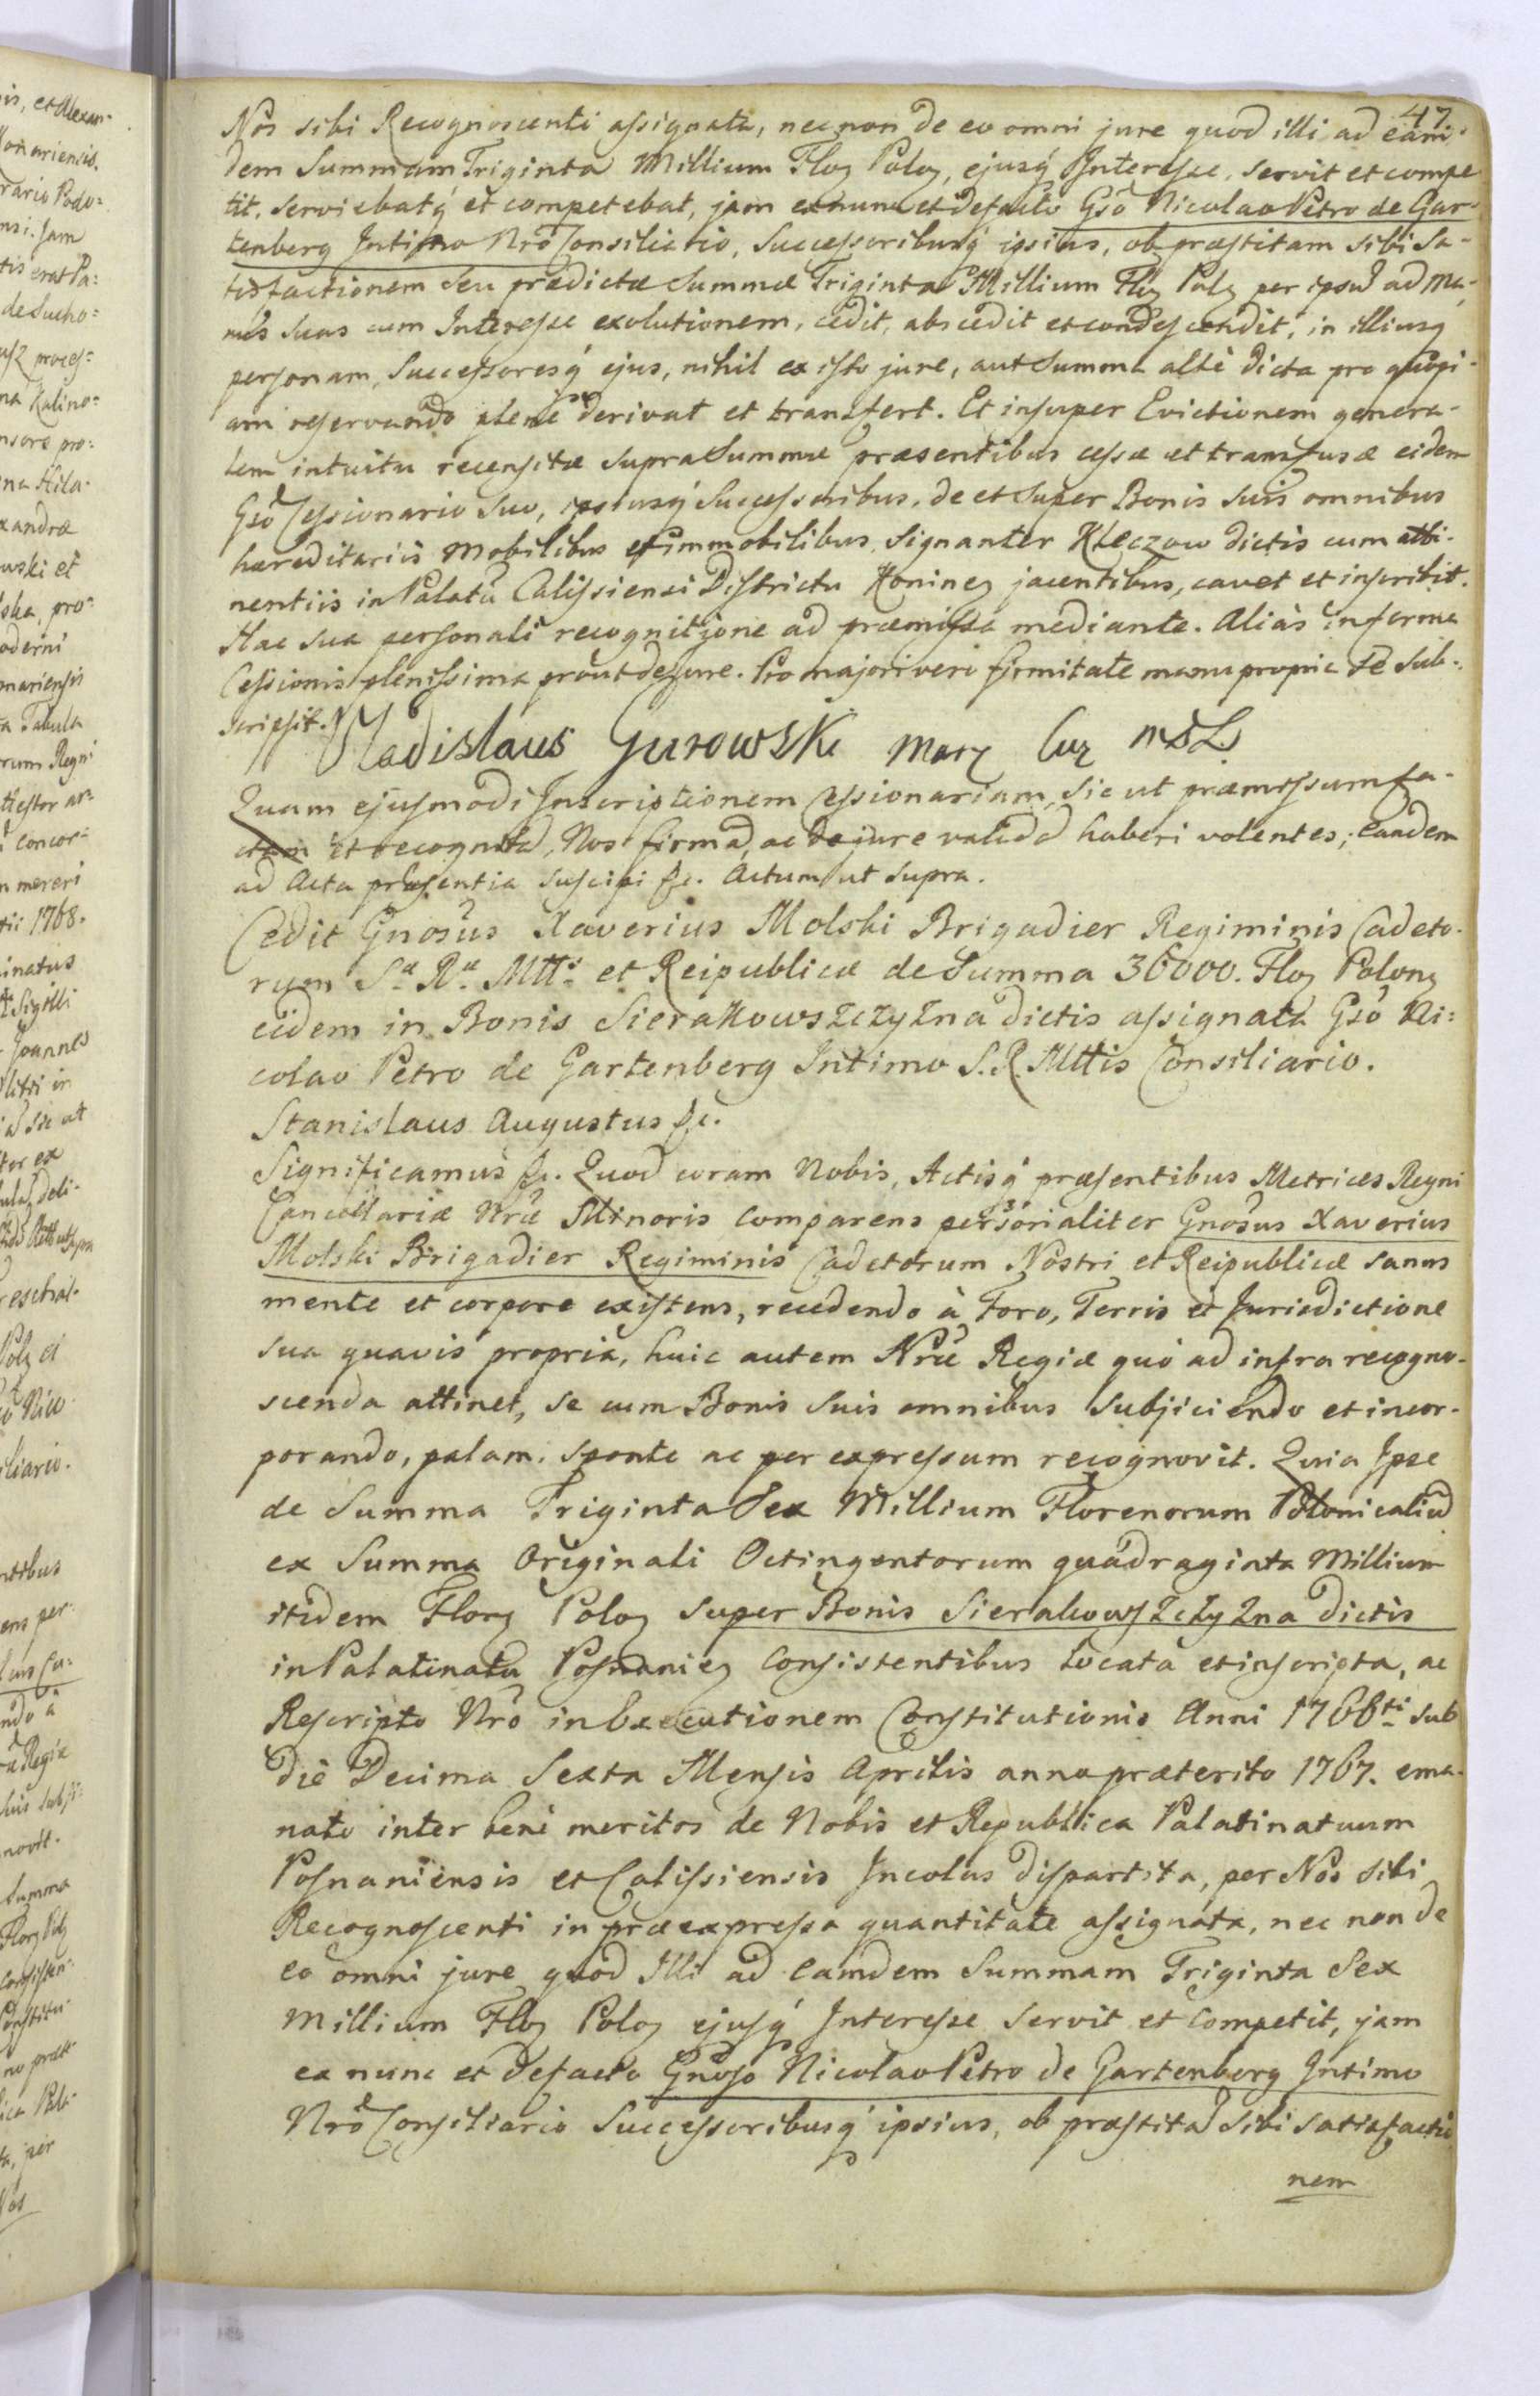 47
Nos sibi Recognoscenti assignata, nec non de eo omni jure quod illi ad eam-
dem Summam Triginta Millium Floz Poloz, ejusq́ Interesse, servit et compe
tit, serviebatq́ et competebat, jam ex nunc et de facto Gsō Nicolao Petro de Gar-
tenberg Intimo Nrō Consiliario, Successoribusq́ ipsius, ob præstitam sibi Sa-
tisfactionem seu prædictæ Summæ Triginta Millium Floz Polz per ipsū ad Ma-
nus suas cum Interesse exolutionem, cedit, abscedit et condescendit, in illiusq
personam, Successoresq́ ejus, nihil ex isto jure, aut Summa alte dicta pro quopi-
am reservando plene derivat et transfert. Et insuper Evictionem genera-
lem intuitu recensitæ supra Summæ præsentibus cessæ et transfusæ eidem
Gsō Cessionario suo, ipsiusq́ Successoribus, de et super Bonis suis omnibus
hæreditariis Mobilibus et immobilibus, signanter Kleczow dictis cum atti-
nentiis in Palatū Calissiensi Districtu Koninez jacentibus, cavet et inscribit.
Hac sua personali recognitione ad præmissa mediante. Aliàs in forma
Cessionis plenissima prout de jure. Pro majori vero firmitate manu propria se sub-
scripsit. Wladislaus Gurowski Marz Cur MDL
Quam ejusmodi Inscriptionem Cessionariam, sic ut præmissum fa-
ctam et recognitā, Nos firmā, ac de jure validā haberi volentes; eandem
ad Acta præsentia suscipi &c. Actum ut supra.
Cedit Gnosus Xaverius Molski Brigadier Regiminis Cadeto-
rum Sæ Ræ Mttis et Reipublicæ de Summa 36000. Floz Polonz
eidem in Bonis Sierakowszczyzna dictis assignata Gsō Ni-
colao Petro de Gartenberg Intimo S. R. Mttis Consiliario.
Stanislaus Augustus &c.
Significamus &c. Quod coram Nobis, Actisq́ præsentibus Metrices Regni
Cancellariæ Nræ Minoris comparens personaliter Gnosus Xaverius
Molski Brigadier Regiminis Cadetorum Nostri et Reipublicæ sanus
mente et corpore existens, recedendo à Foro, Terris et Jurisdictione
sua quavis propria, huic autem Nræ Regiæ quò ad infra recogno-
scenda attinet, se cum Bonis suis omnibus subjiciendo et incor-
porando, palam, sponte ac per expressum recognovit. Quia Ipse
de Summa Triginta Sex Millium Florenorum Polonicaliū
ex Summa Originali Octingentorum quadraginta Millium
itidem Florz Poloz super Bonis Sierakowszczyzna dictis
in Palatinatu Posnaniez Consistentibus locata et inscripta, ac
Rescripto Nrō in Executionem Constitutionis Anni 1766ti sub
die Decima Sexta Mensis Aprilis anno præterito 1767. ema-
nato inter bene meritos de Nobis et Republica Palatinatuum
Posnaniensis et Calissiensis Incolas dispartita, per Nos sibi
Recognoscenti in præexpressa quantitate assignata, nec non de
eo omni jure quod Illi ad eamdem Summam Triginta Sex
Millium Floz Poloz ejusq́ Interesse servit et competit, jam
ex nunc et de facto Gnoso Nicolao Petro de Gartenberg Intimo
Nrō Consiliario Successoribusq́ ipsius, ob præstitā sibi satisfactio
nem